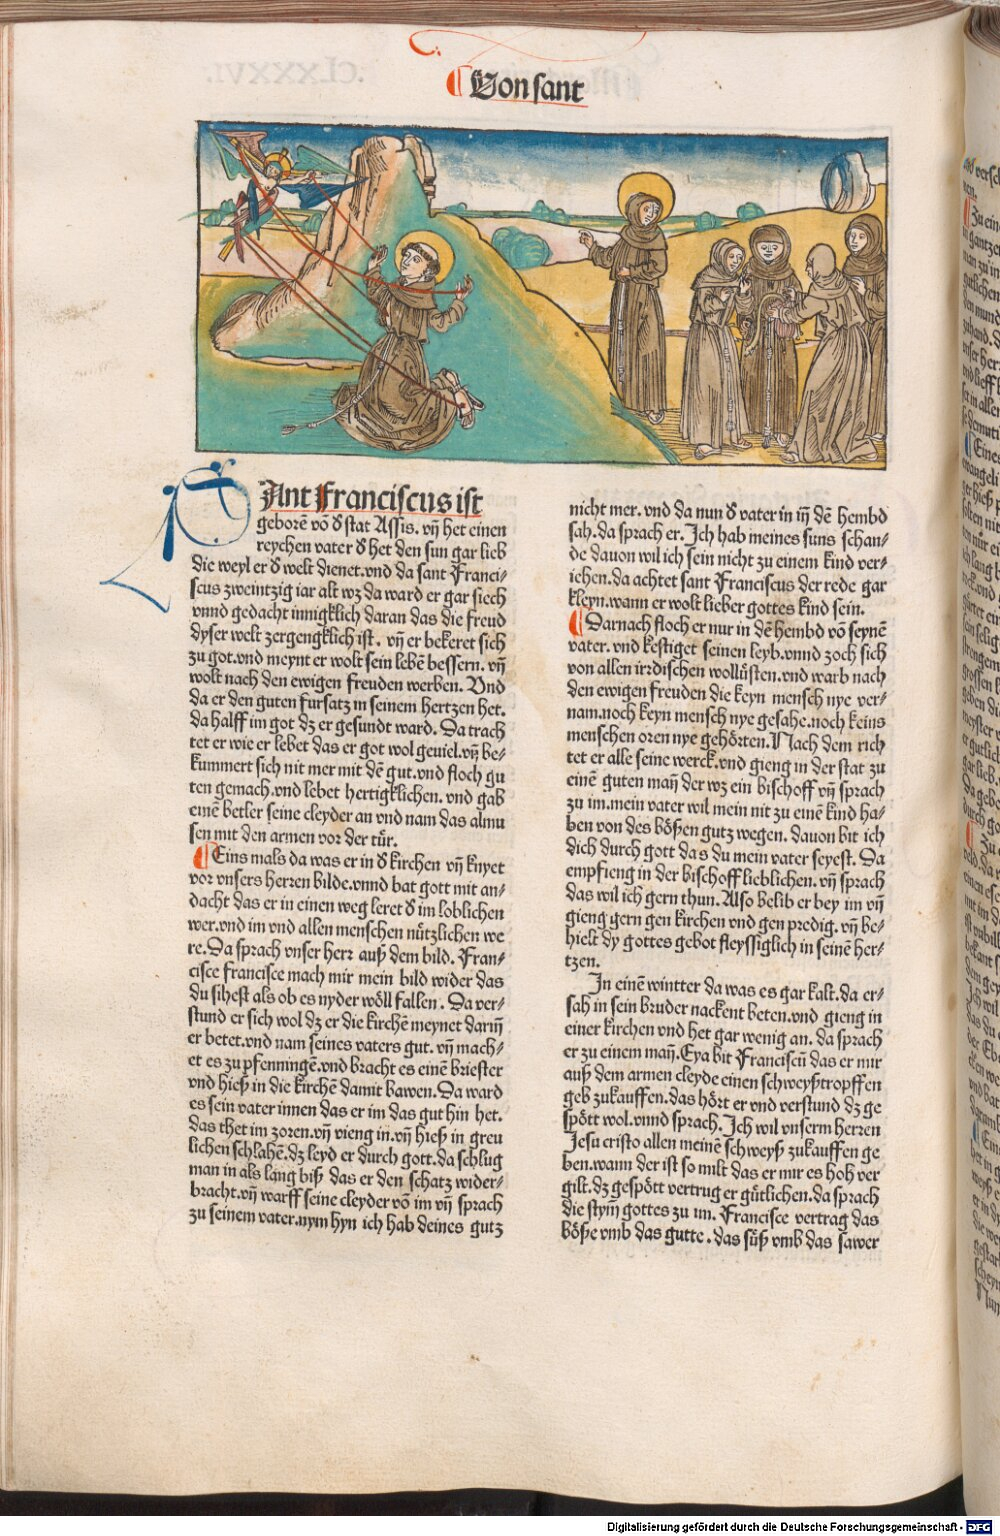 C.
¶ Von sant
SAnt Franciscus ist
geborē vō d stat Assis. vn̄ het einen
reychen vater d het den sun gar lieb
die weyl er d welt dienet.vnd da sant Franci⸗
scus zweintzig iar alt wz da ward er gar siech
vnnd gedacht innigklich daran das die freud
dyser welt zergengklich ist. vn̄ er bekeret sich
zu got.vnd meynt er wolt sein lebē bessern. vn̄
wolt nach den ewigen freuden werben. Vnd
da er den guten fursatz in seinem hertzen het.
da halff im got dz er gesundt ward. Da trach
tet er wie er lebet das er got wol geuiel.vn̄ be⸗
kummert sich nit mer mit dē gut.vnd floch gu
ten gemach.vnd lebet hertigklichen. vnd gab
einē betler seine cleyder an vnd nam das almu
sen mit den armen vor der tür.
¶ Eins mals da was er in d kirchen vn̄ knyet
vor vnsers herren bilde.vnnd bat gott mit an⸗
dacht das er in einen weg leret d im loblichen
wer.vnd im vnd allen menschen nützlichen we
re. Da sprach vnser herr auß dem bild. Fran⸗
cisce francisce mach mir mein bild wider das
du sihest als ob es nyder wöll fallen. Da ver⸗
stund er sich wol dz er die kirchē meynet darin̄
er betet.vnd nam seines vaters gut. vn̄ mach⸗
et es zu pfenningē.vnd bracht es einē briester
vnd hieß in die kirchē damit bawen. Da ward
es sein vater innen das er im das gut hin het.
das thet im zoren.vn̄ vieng in.vn̄ hieß in greu
lichen schlahē.dz leyd er durch gott.da schlug
man in als lang biß das er den schatz wider⸗
bracht.vn̄ warff seine cleyder vō im vn̄ sprach
zu seinem vater.nym hyn ich hab deines gutz
nicht mer. vnd da nun d vater in in̄ dē hembd
sah. da sprach er. Ich hab meines suns schan⸗
de dauon wil ich sein nicht zu einem kind ver⸗
iehen.da achtet sant Franciscus der rede gar
kleyn.wann er wolt lieber gottes kind sein.
¶ Darnach floch er nur in dē hembd vō seynē
vater. vnd kestiget seinen leyb.vnnd zoch sich
von allen irdischen wollüsten.vnd warb nach
den ewigen freuden die keyn mensch nye ver⸗
nam.noch keyn mensch nye gesahe.noch keins
menschen oren nye gehörten. Nach dem rich
tet er alle seine werck.vnd gieng in der stat zu
einē guten man̄ der wz ein bischoff vn̄ sprach
zu im.mein vater wil mein nit zu einē kind ha⸗
ben von des bößen gutz wegen. dauon bit ich
dich durch gott das du mein vater seyest. Da
empfieng in der bischoff lieblichen. vn̄ sprach
das wil ich gern thun. Also belib er bey im vn̄
gieng gern gen kirchen vnd gen predig. vn̄ be⸗
hielt dy gottes gebot fleyssiglich in seinē her⸗
tzen.
In einē wintter da was es gar kalt.da er⸗
sah in sein bruder nackent beten.vnd gieng in
einer kirchen vnd het gar wenig an. da sprach
er zu einem man̄. Eya bit Franciscū das er mir
auß dem armen cleyde einen schweyßtropffen
geb zukauffen. das hört er vnd verstund dz ge
spött wol.vnnd sprach. Ich wil vnserm herren
Jesu cristo allen meinē schweyß zukauffen ge
ben.wann der ist so milt das er mir es hoh ver
gilt.dz gespött vertrug er gütlichen.da sprach
die stym̄ gottes zu im. Francisce vertrag das
böße vmb das gutte. das süß vmb das sawer
Digitalisierung gefördert durch die Deutsche Forschungsgemeinschaft - DFG